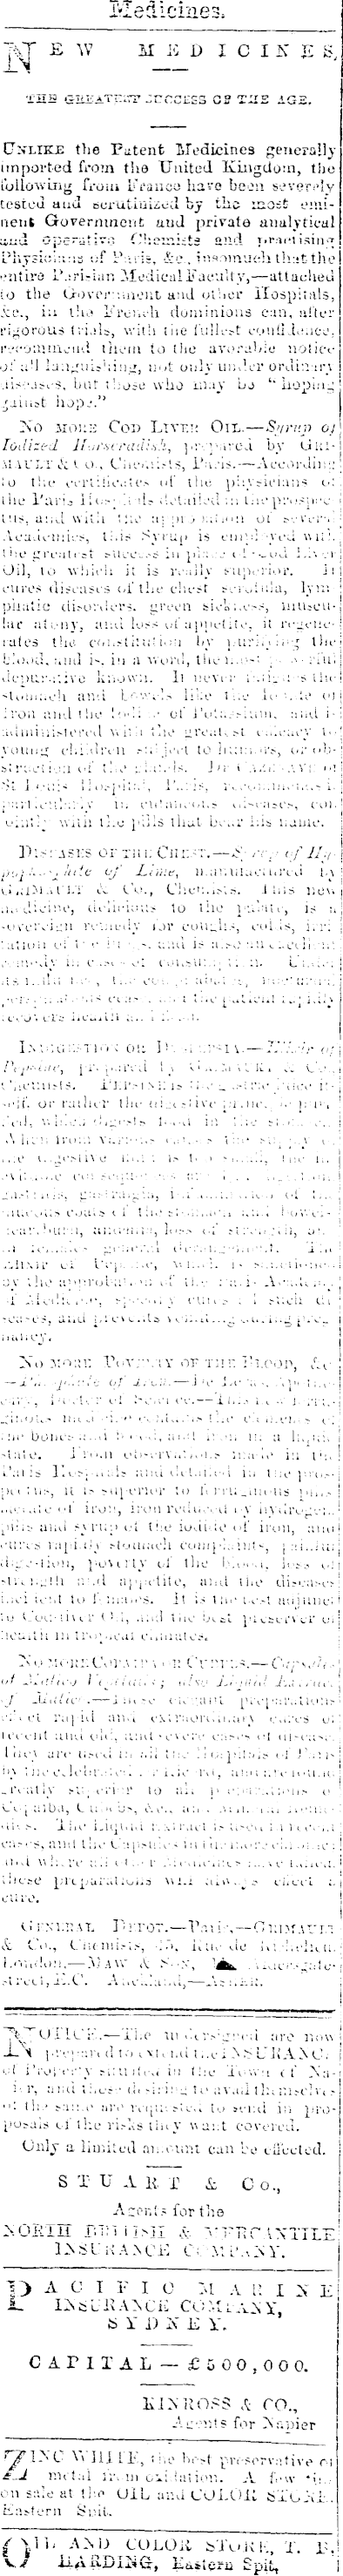 Medicines.
NEW MEDICINES,
THE GREATEST SUCCESS OF THE AGE.
UNLIKE the Patent Medicines generally
imported from the United Kingdom, the
following from France have been severely
tested and scrutinized by the most emi-
nent Government and private analytical
and operative Chemists and practising
Physicians of Paris, &c., insomuch that the
entire Parisian Medical Faculty,—attached
to the Government and other Hospitals,
&c., in the French dominions can, after
rigorous trials, with the fullest confidence,
recommend them to the avorable notice
of all languishing, not only under ordinary
diseases, but those who may be "hoping
gainst hope."
NO MORE COD LIVER OIL.—Syrup of
Iodized Horseradish, prepared by GRI-
MAULT & Co., Chemists, Paris.—According
to the certificates of the physicians of
the Paris Hospitals detailed in the prospec-
tus, and with the approbation of several
Academies, this Syrup is employed with
the greatest success in place of Cod Liver
Oil, to which it is really superior. It
cures diseases of the chest scrofula, lym
phatic disorders, green sickness, muscu-
lar atony, and loss of appetite, it regene-
rates the constitution by purifying the
blood, and is, in a word, the most powerful
depurative known. It never fatigues the
stomach and bowels like the Iodide of
Iron and the Iodide of Potassium, and is
administered with the greatest efficacy to
young children subject to humors, or ob-
struction of the glands. Dr CAZENAVE of
St Louis Hospital, Paris, recommends it
particularly in cutaneous diseases, con
ointly with the pills that bear his name.
DISEASES OF THE CHEST.—Syrup of Hy-
pophosphite of Lime, manufactured by
GRIMAULT & Co., Chemists. This new
medicine, delicious to the palate, is a
sovereign remedy for coughs, colds, irri
tation of the and is also an excellent
remedy in cases of consumption. Under
its the cough
cease and the patient rapidly
recovers health and
INDIGESTION OR DYSPEPSIA.—Elixir of
Pepsine, prepared by GRIMAULT & Co.,
Chemists. PEPSINE is the gastric juice it-
self, or rather the digestive
which digests food in the
When from various causes the supply
digestive is too small, the in
evitable consequences are
gastritis, gastralgia, inflammation of the
mucous coats of the stomach and bowels
heartburn, anaemia, loss of strength, or
in females general derangement. The
Elixir of Pepsine, which is sanctioned
by the approbation of the Paris Academy
of Medicine, speedily cures all such di
seases, and prevents vomiting during preg
nancy.
NO MORE POVERTY OF THE BLOOD, &c
—Phosphate of Iron.—
Doctor of Science.—This new ferru-
ginous medicine contains the elements of
the bones and blood, and iron in a liquid
state. From observations made in the
Paris Hospitals and detailed in the pros-
pectus, it is superior to ferruginous pills
lactate of iron, iron reduced by hydrogen,
pills and syrup of the iodide of iron, and
cures rapidly stomach complaints, painful
digestion, poverty of the blood, loss of
strength and appetite, and the diseases
incident to females. It is the best adjunct
to Cod-liver Oil, and the best preserver of
health in tropical climates.
NO MORE COPAIBA OR CUBEBS.—Capsules
of Matico Vegetales; also Liquid Extract
of Matico.—These elegant preparations
effect rapid and extraordinary cures of
recent and old, and severe cases of disease.
They are used in all the Hospitals of Paris
by the celebrated and are found
greatly superior to all preparations of
Copaiba, Cubebs, &c., and mineral reme-
dies. The Liquid Extract is used in recent
cases, and the Capsules in the more chronic;
and where all other medicines have failed,
these preparations will always effect a
cure.
GENERAL DEPOT.—Paris,—GRIMAULT
& Co., Chemists, 45, Rue de Richelieu.
London.—MAW & SON, Aldersgate-
street, E.C. Auckland,—ASHER.
NOTICE.—The undersigned are now
prepared to extend the INSURANCE
of Property situated in the Town of Na-
pier, and those desiring to avail themselves
of the same are requested to send in pro-
posals of the risks they want covered.
Only a limited amount can be effected.
STUART & Co.,
Agents for the
NORTH BRITISH & MERCANTILE
INSURANCE COMPANY.
PACIFIC MARINE
INSURANCE COMPANY,
SYDNEY.
CAPITAL—£500,000.
KINROSS & CO.,
Agents for Napier
ZINC WHITE, the best preservative of
metal from oxidation. A few tins
on sale at the OIL and COLOR STORE.
Eastern Spit.
OIL AND COLOR STORE, T. B.
HARDING, Eastern Spit,